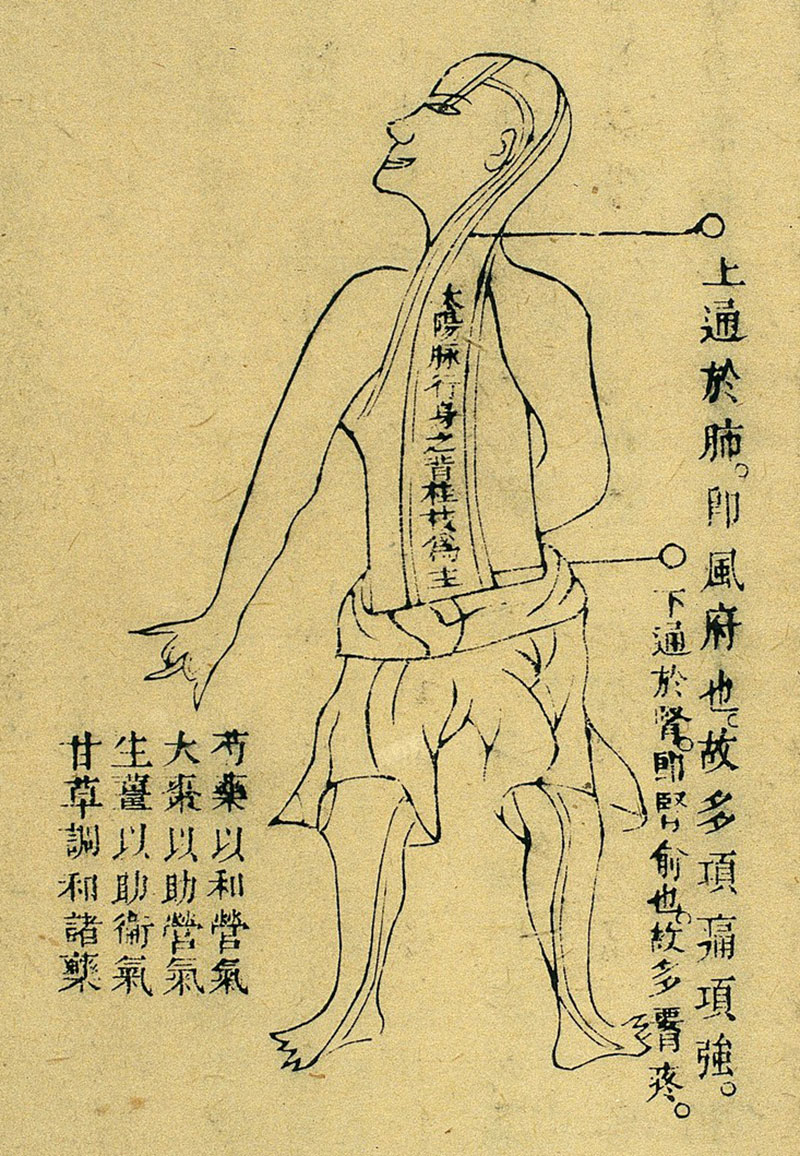 上通於肺。即風府也。故多項痛項強。
下通於腎。即腎俞也。故多腰疼。
太陽脉行身之背桂枝爲主
芍藥以和營氣
大棗以助營氣
生薑以助衞氣
甘草調和諸藥